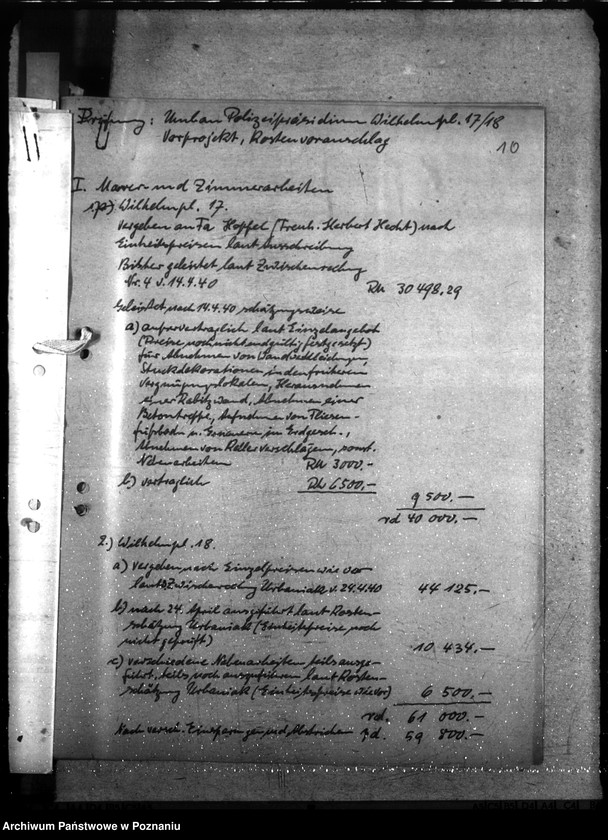 Prüfung: Umbau Polizeipräsidium Wilhelmpl. 17/18
Vorprojekt, Kostenvoranschlag
10
I. Maurer- und Zimmerarbeiten
1.) Wilhelmpl. 17.
vergeben an Fa Hoffel (Treuh. Herbert Hecht) nach
Einheitspreisen laut Ausschreibung
Bisher geleistet laut Zwischenrechng
Nr. 4 v. 14.4.40 RM 30 498.29
Geleistet nach 14.4.40 schätzungsweise
a) außervertraglich laut Einzelangebot
(Preise noch nicht endgültig festgesetzt)
für Abnehmen von Wandverkleidungen,
Stuckdekorationen in den früheren
Vergnügungslokalen, Herausnehmen
einer Rabitzwand, Abnehmen einer
Betontreppe, Aufnehmen von Fliesen-
fußboden u. Erneuern im Erdgesch.,
Abnehmen von Kellerverschlägen, sonst.
Nebenarbeiten RM 3000.-
b) vertraglich RM 6500.-
9 500.-
rd 40 000.-
2.) Wilhelmpl. 18.
a) vergeben nach Einzelpreisen wie vor
laut Zwischenrechng Urbaniak v. 24.4.40 44 125.-
b) nach 24. April ausgeführt laut Kosten-
schätzung Urbaniak (Einheitspreise noch
nicht geprüft) 10 434.-
c) verschiedene Nebenarbeiten teils ausge-
führt, teils noch auszuführen laut Kosten-
schätzung Urbaniak (Einheitspreise wie vor) 6 500.-
rd. 61 000.-
Nach verein. Einsparungen und Abstrichen rd. 59 800.-
Archiwum Państwowe w Poznaniu